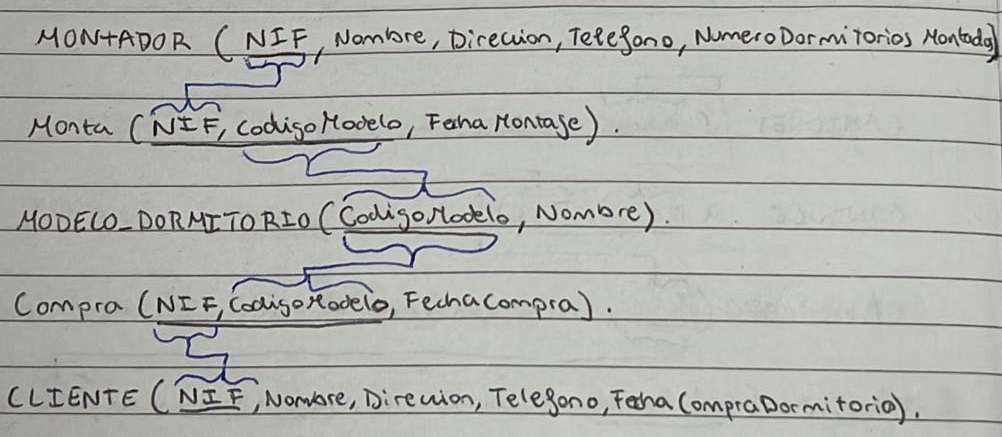 MONTADOR (NIF, Nombre, Direccion, Telefono, NumeroDormitorios Montado)
Monta (NIF, CodigoModelo, Fecha Montaje).
MODELO_DORMITORIO (CodigoModelo, Nombre).
Compra (NIF, CodigoModelo, FechaCompra).
CLIENTE (NIF, Nombre, Direccion, Telefono, FechaCompraDormitorio).